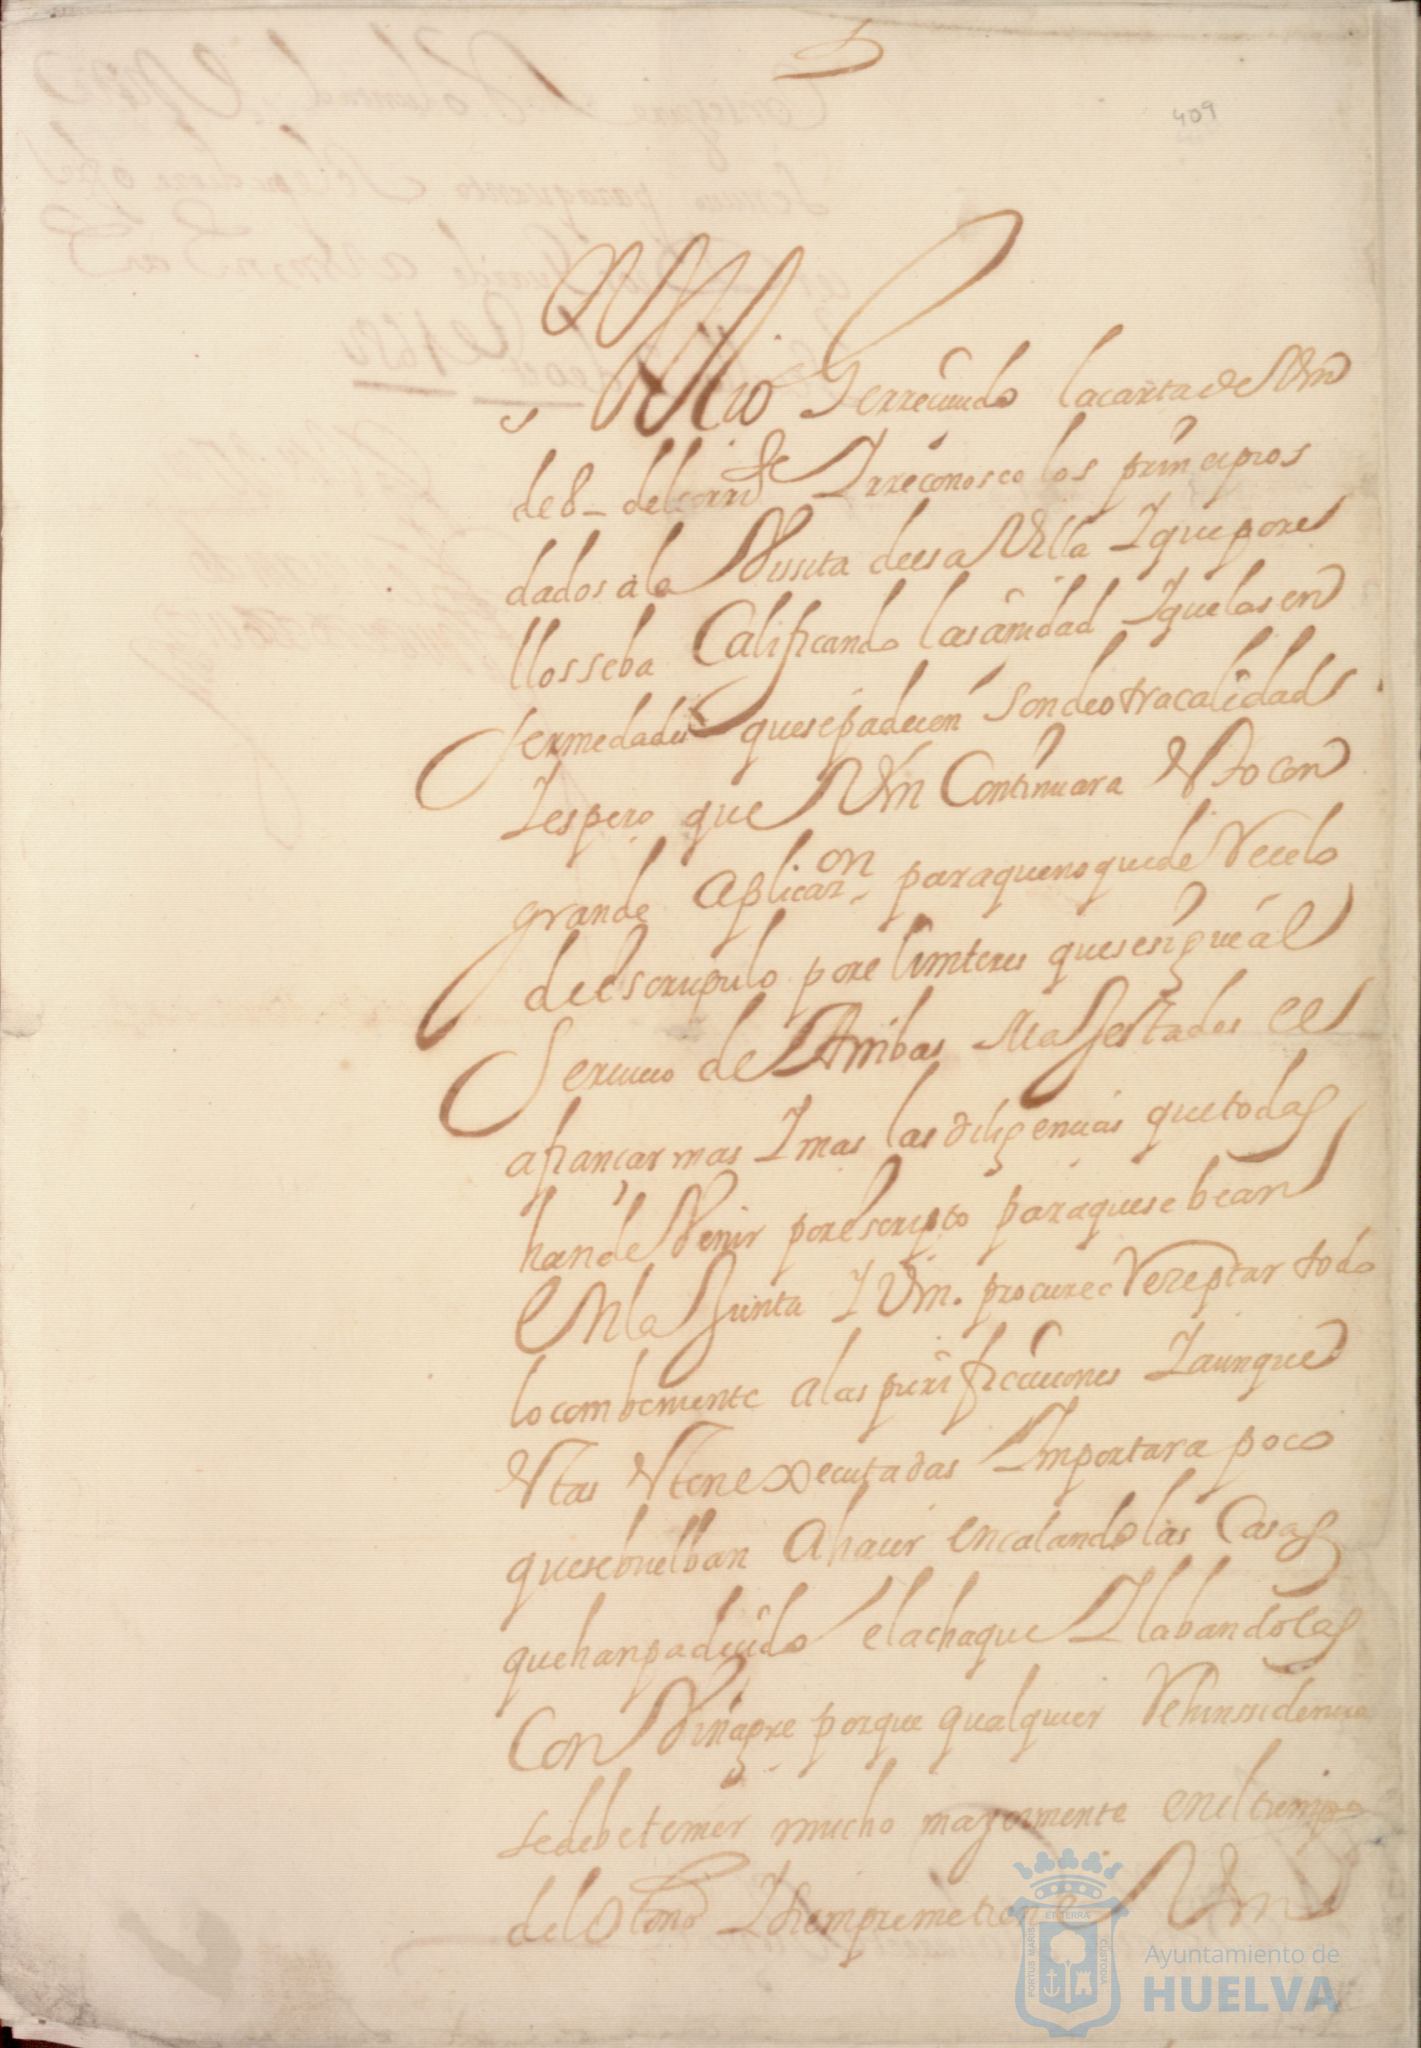 409
Sr Mio Herreciuido lacarta de Vm
de 8 - del corrite Irreconosco los principios
dados a la Vissita deesa Villa I que pores
llos seba Calificando lasanidad I quelasen
fermedades quesepadecen Son deotracalidad
I espero que Vm Continuara esto con
grande Aplicazon paraqueno quede Recelo
deescrupulo porelinteres quesesigueal
Seruicio de Ambas Magestades ees
afiancar mas I mas las diligencias quetodas
hande Venir porescripto paraquese bean
En la Junta I Vm. procure Reseptar todo
lo combeniente alas purificaciones I aunque
estas esten executadas Importara poco
quesebuelban Ahacer encalando las Casas
quehan padecido elachaque I labandolas
Con Vinagre porque qualquier Rehinssidencia
sedebe temer mucho mayormente enel tiempo
del Otoño I siempre me tiene Vm
PORTUS MARIS ET TERRAE CUSTODIA
Ayuntamiento de
HUELVA